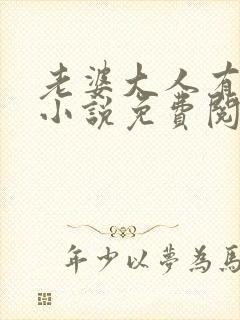 老婆大人有
小說免費閱
年少以夢為馬